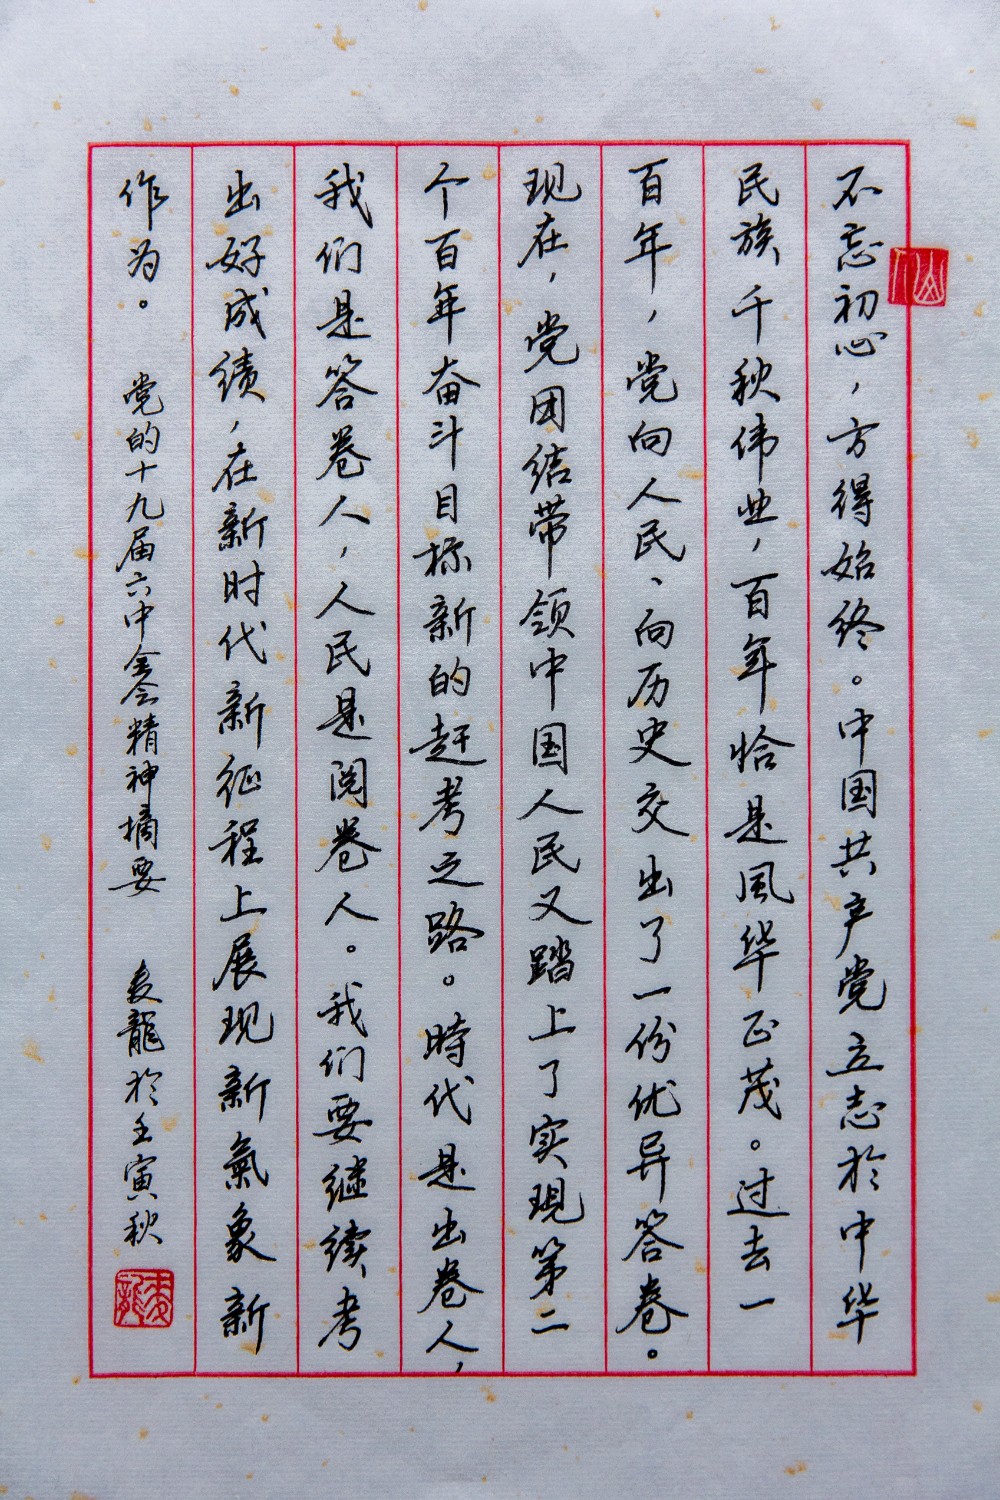 不忘初心，方得始终。中国共产党立志於中华
民族千秋伟业，百年恰是風华正茂。过去一
百年，党向人民、向历史交出了一份优异答卷。
现在，党团结带领中国人民又踏上了实現第二
个百年奋斗目标新的赶考之路。時代是出卷人，
我们是答卷人，人民是阅卷人。我们要继续考
出好成绩，在新时代新征程上展现新氣象新
作为。 党的十九届六中全会精神摘要 麦龍於壬寅秋